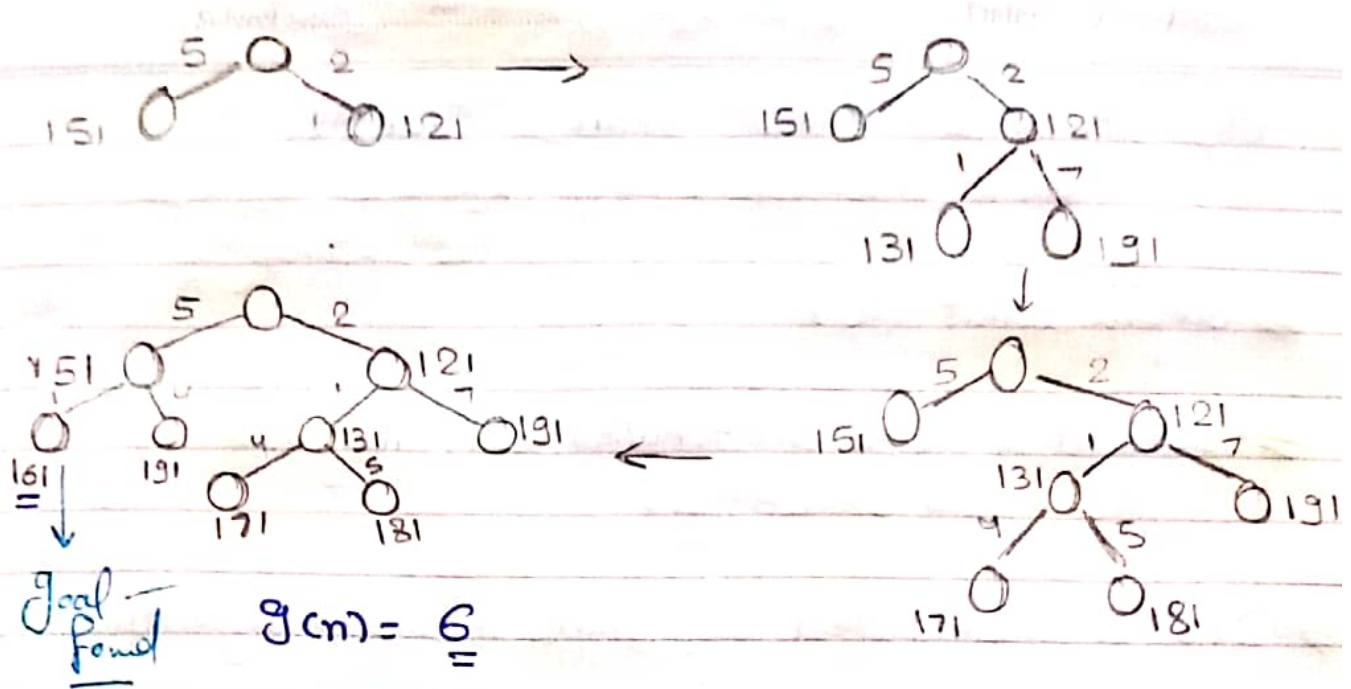 5 2
151 121
5 2
151 121
1 7
131 191
5 2
151 121
1 7
131 191
4 5
171 181
5 2
151 121
1 7
161 191 131 191
4 5
171 181
Goal
found
g(n) = 6